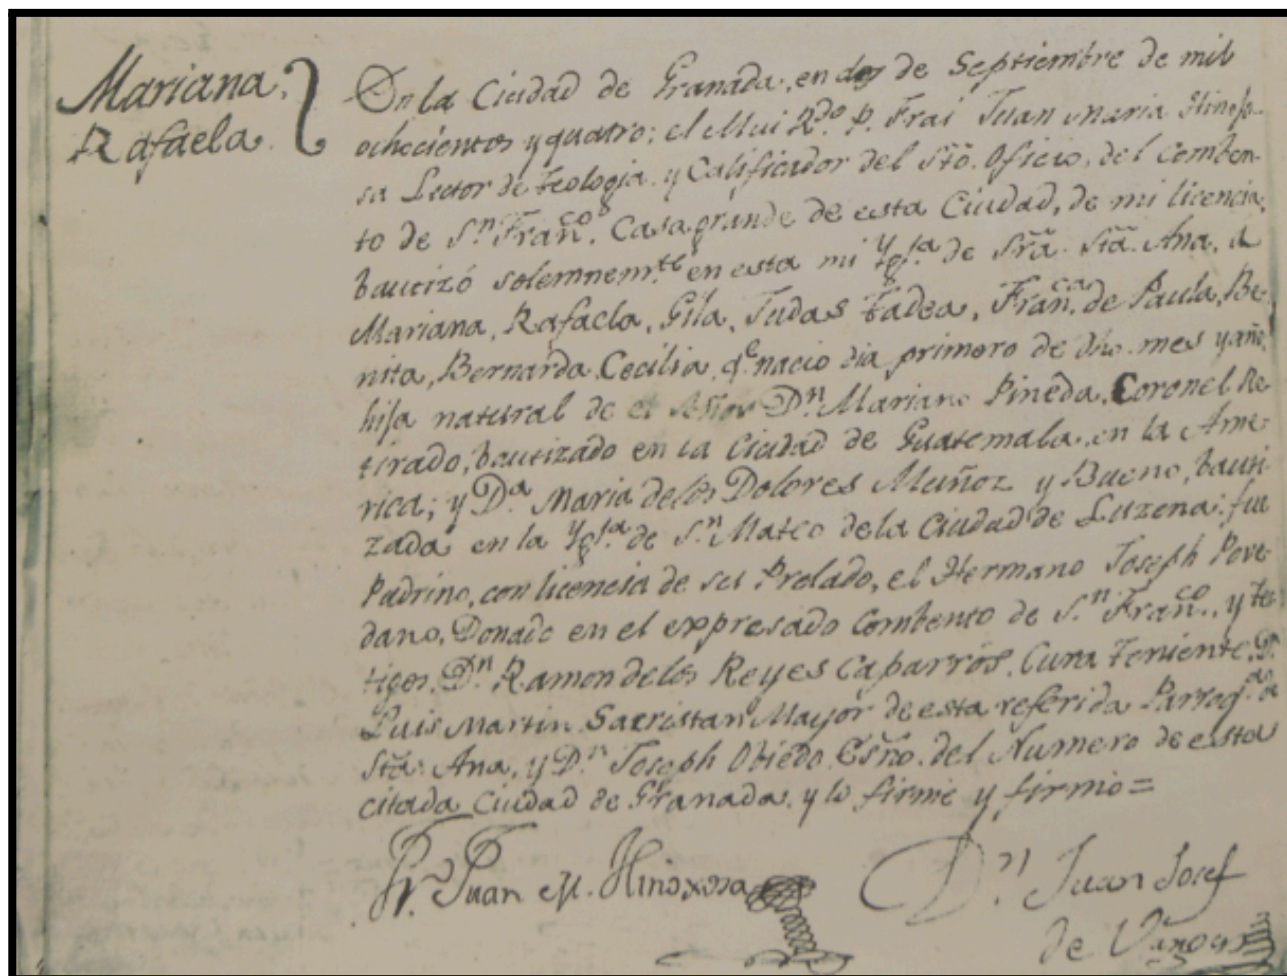 Mariana,
Rafaela.
En la Ciudad de Granada, en dos de Septiembre de mil
ochocientos y quatro: el Mui R.do P. Frai Juan Maria Hinojo-
sa Lector de teologia, y Calificador del Sto. Oficio, del Comben-
to de S.n Fran.co Casa grande de esta Ciudad, de mi licencia,
bautizó solemnem.te en esta mi Ygl.a de Sra. Sta. Ana, á
Mariana, Rafaela, Gila, Judas tadea, Fran.ca de Paula, Be-
nita, Bernarda, Cecilia, q.e nacio dia primero de dho. mes y año,
hija natural de el Señor D.n Mariano Pineda, Coronel Re-
tirado, bautizado en la Ciudad de Guatemala, en la Ame-
rica; y D.a Maria de los Dolores Muñoz y Bueno, bauti-
zada en la Ygl.a de S.n Mateo de la Ciudad de Luzena: fue
Padrino, con licencia de su Prelado, el Hermano Joseph Pove-
dano, Donado en el expresado Combento de S.n Fran.co, y tes-
tigos, D.n Ramon de los Reyes Caparrós, Cura teniente, D.n
Luis Martin, Sacristan Mayor de esta referida Parroq.a de
Sta. Ana, y D.n Joseph Obiedo, Esno. del Numero de esta
citada Ciudad de Granada, y lo firmé y firmó=
Fr. Juan M. Hinoxosa
D.n Juan Josef
de